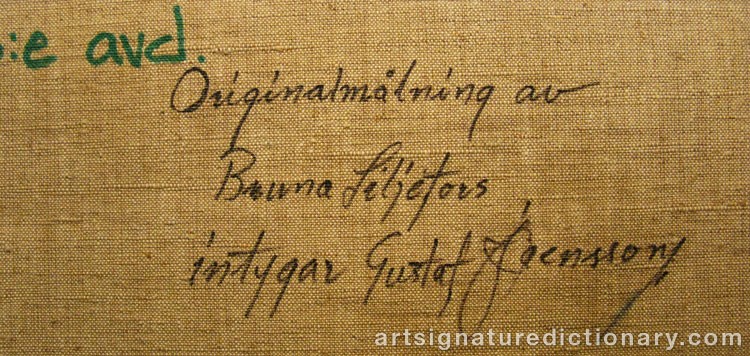 :e avd.
Originalmålning av
Bruna Liljefors
intygar Gustaf Joensson
artsignaturedictionary.com